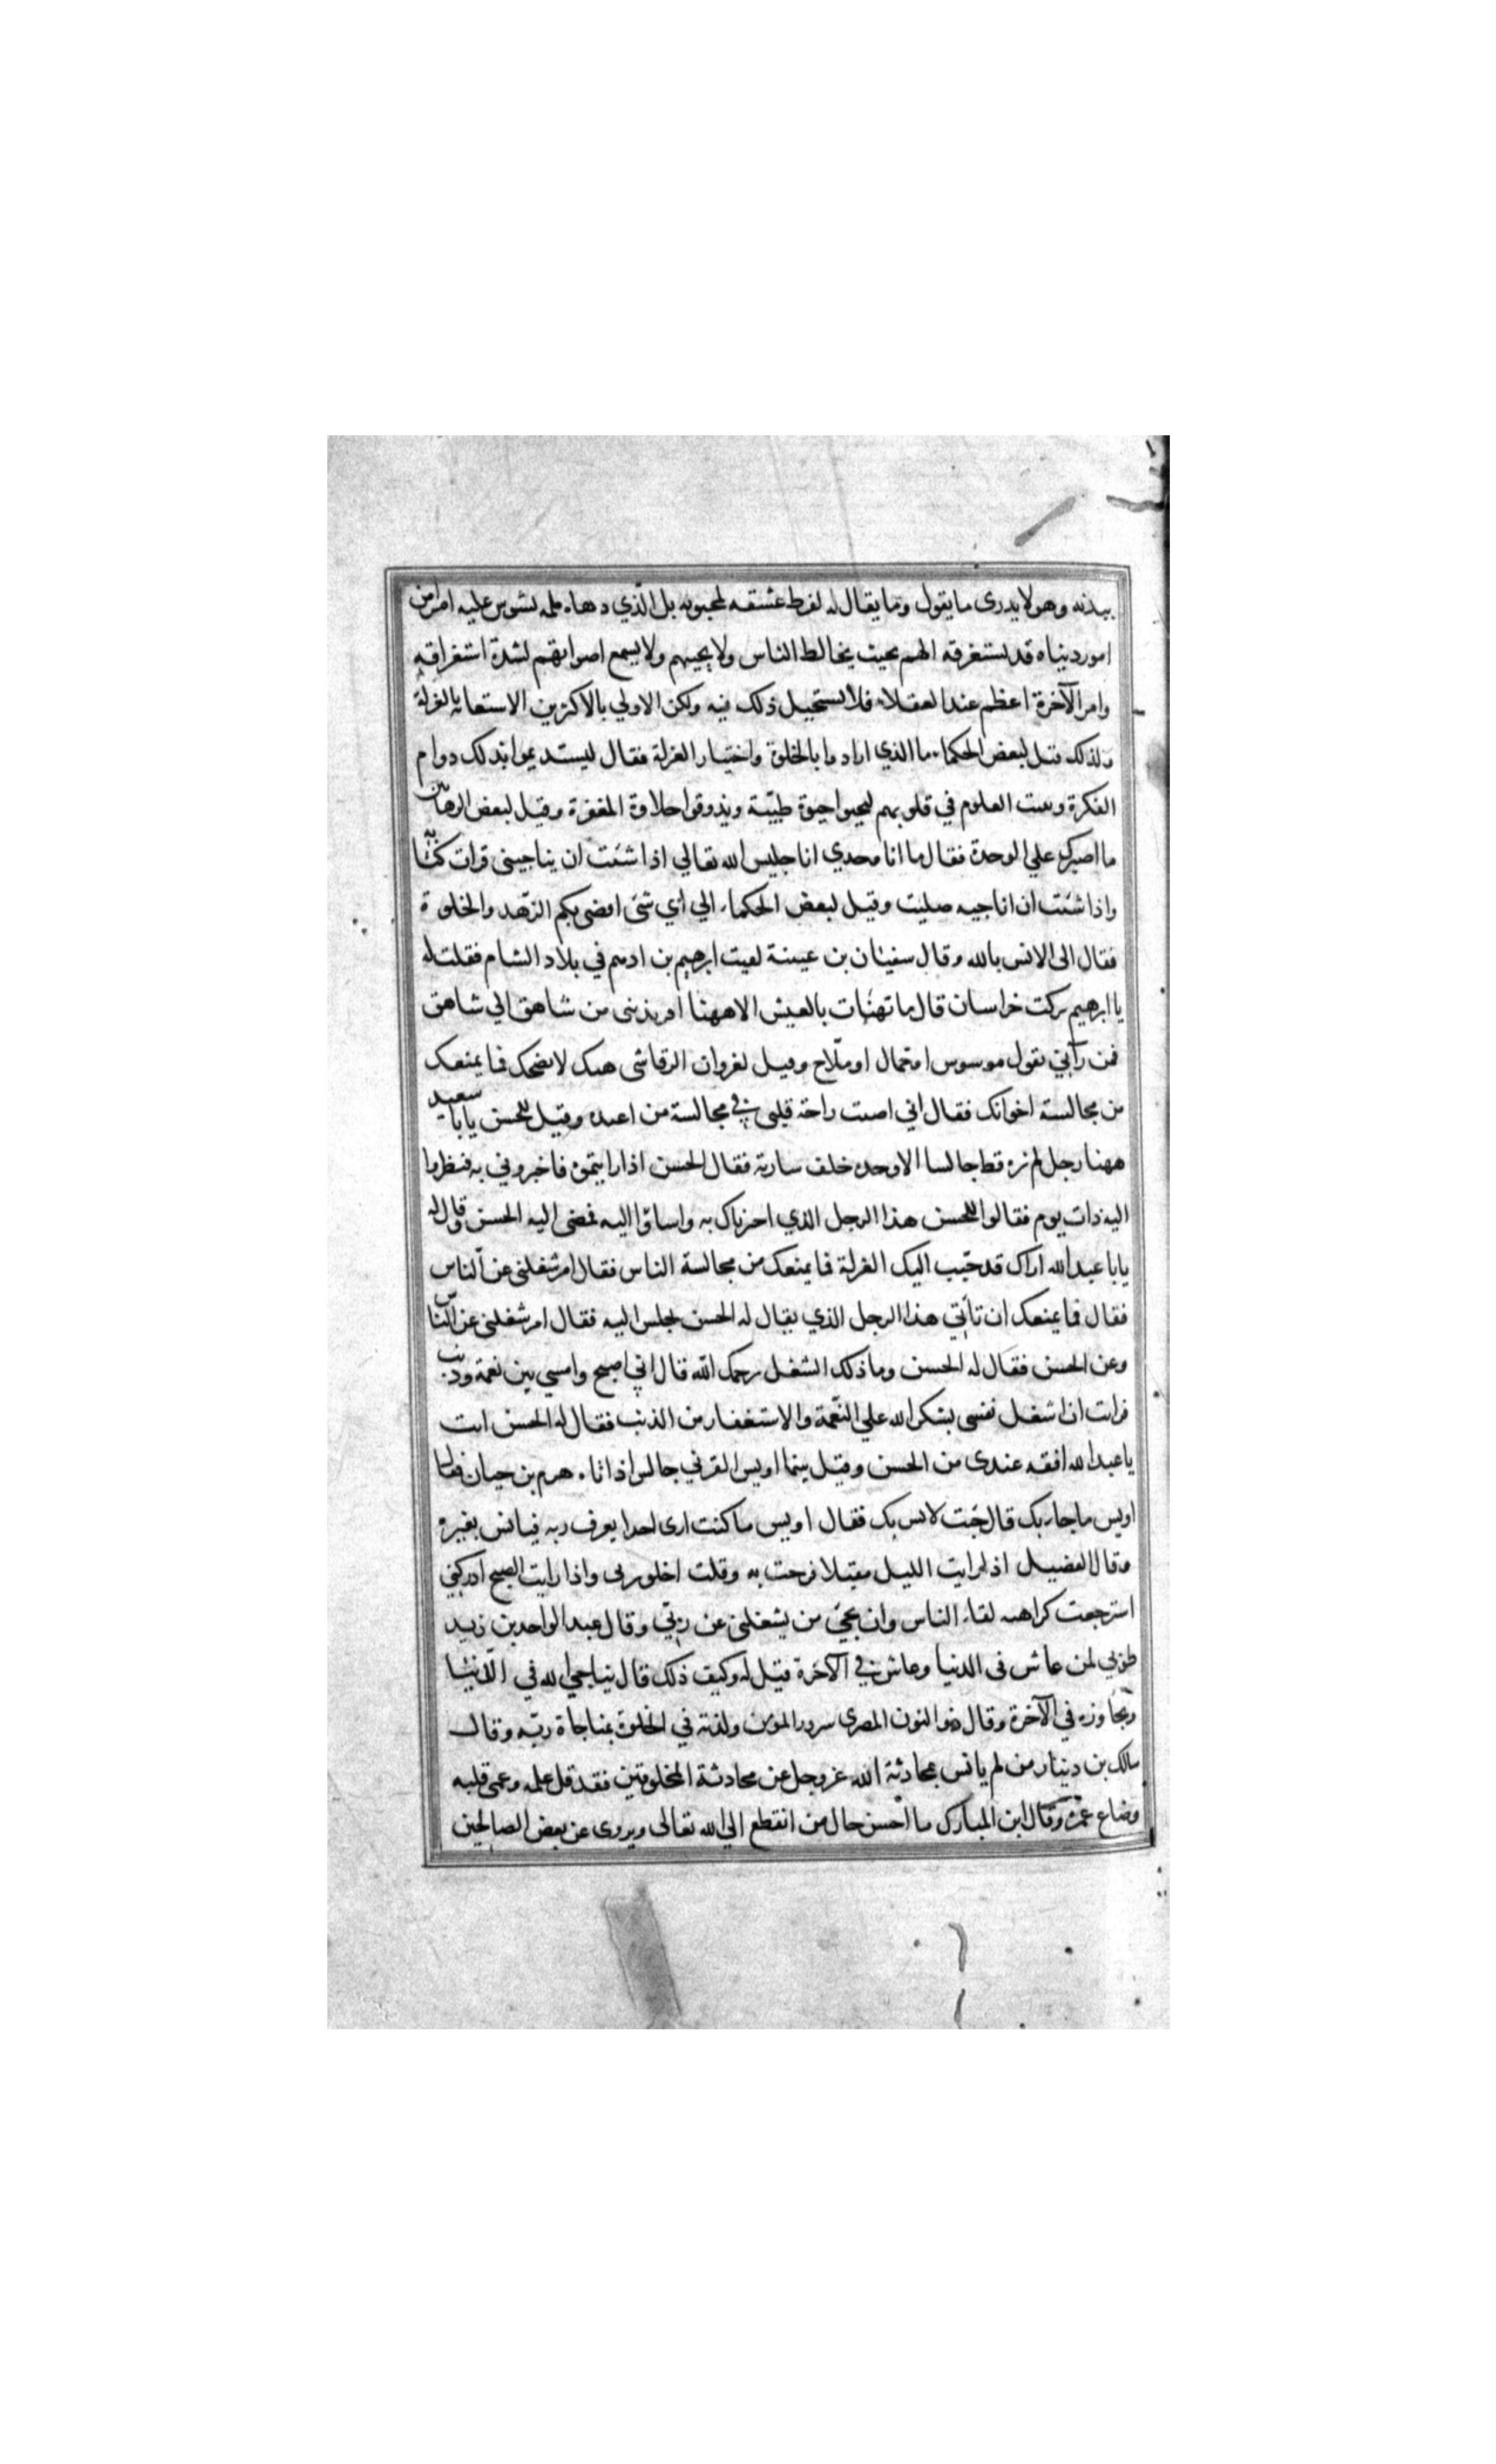 ببدنه وهو لا يدرى ما يقول وما يقال له لفرط عشقه لمحبوبه بل الّذي دهاه ملمه تشوس عليه امرا من
امور دنياه قد يستغرقه الهم بحيث يخالط الناس ولا يحبهم ولا يسمع اصواتهم لشدة استغراقه
وامر الآخرة اعظم عند العقلاء فلا يستحيل ذلك فيه ولكن الاولي بالاكثرين الاستعانة بالعزلة
ولذلك قيل لبعض الحكماء ما الذي ارادوا بالخلوة واختيار العزلة فقال ليستديموا بذلك دوام
الفكرة وتثبت العلوم في قلوبهم ليحيوا حيوة طيّبة ويذوقوا حلاوة المغفرة وقيل لبعض الرهابين
ما اصبرك علي الوحدة فقال ما انا محدي انا جليس الله تعالي اذا شئت ان يناجيني قرات كتابا
واذا شئت ان اناجيه صليت وقيل لبعض الحكماء الي اي شئ افضى بكم الزّهد والخلوة
فقال الى الانس بالله وقال سفيان بن عيينة لقيت ابرهيم بن ادهم في بلاد الشام فقلت له
يا ابرهيم تركت خراسان قال ما تهنّات بالعيش الا ههنا افر بذنبى من شاهق الي شاهق
فمن رآني يقول موسوس او حمال او ملّاح وقيل لغزوان الرقاشى هبك لا تضحك فما يمنعك
من مجالسة اخوانك فقال اني اصبت راحة قلبى في مجالسة من اعبده وقيل للحسن يابا سعيد
ههنا رجل لم نره قط جالسا الا وحده خلف سارية فقال الحسن اذا رايتموه فاخبروني به فنظروا
اليه ذات يوم فقالوا للحسن هذا الرجل الذي اخبرناك به واساؤا اليه فمضى اليه الحسن وقال له
يابا عبد الله اراك قد حبّب اليك العزلة فما يمنعك من مجالسة الناس فقال امر شغلنى عن الّناس
فقال فما يمنعك ان تأتي هذا الرجل الذي يقال له الحسن لجلس اليه فقال امر شغلنى عن الناس
وعن الحسن فقال له الحسن وما ذلك الشغل رحمك الله قال اني اصبح وامسي بين نعمة وذنب
فرايت ان اشغل نفسى بشكر الله علي النّعمة والاستغفار من الذنب فقال له الحسن انت
يا عبد الله افقه عندى من الحسن وقيل بينما اويس القرني جالس اذ اتاه هرم بن حيان فقال
اويس ما جاء بك قال جئت لانس بك فقال اويس ما كنت ارى احدا يعرف ربه فيانس بغيره
وقال الفضيل اذا رايت الليل مقبلا فرحت به وقلت اخلو بربى واذا رايت الصبح ادركني
استرجعت كراهيه لقاء الناس وان يجئ من يشغلنى عن ربّي وقال عبد الواحد بن زيد
طوبي لمن عاش فى الدنيا وعاش في الآخرة قيل له وكيف ذلك قال يناجي الله في الّدنيا
ويجاوره في الآخرة وقال ذو النون المصرى سرور المؤمن ولذته في الخلوة بمناجاة ربّه وقال
مالك بن دينار من لم يانس بمحادثة الله عزوجل عن محادثة المخلوقين فقد قل علمه وعمى قلبه
وضاع عمره وقال ابن المبارك ما احسن حال من انقطع الي الله تعالى ويروى عن بعض الصالحين